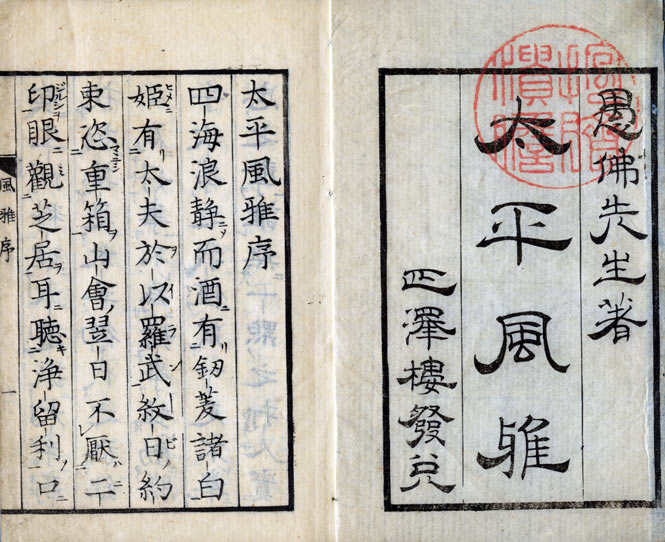 愚佛先生著
太平風雅
四澤樓發兌
太平風雅序
四海浪静而酒有釼菱諸白
姫有太夫於以羅武紋日約
東恣重箱山會翌日不厭二
印眼觀芝居耳聽浄留利口
風雅序 一